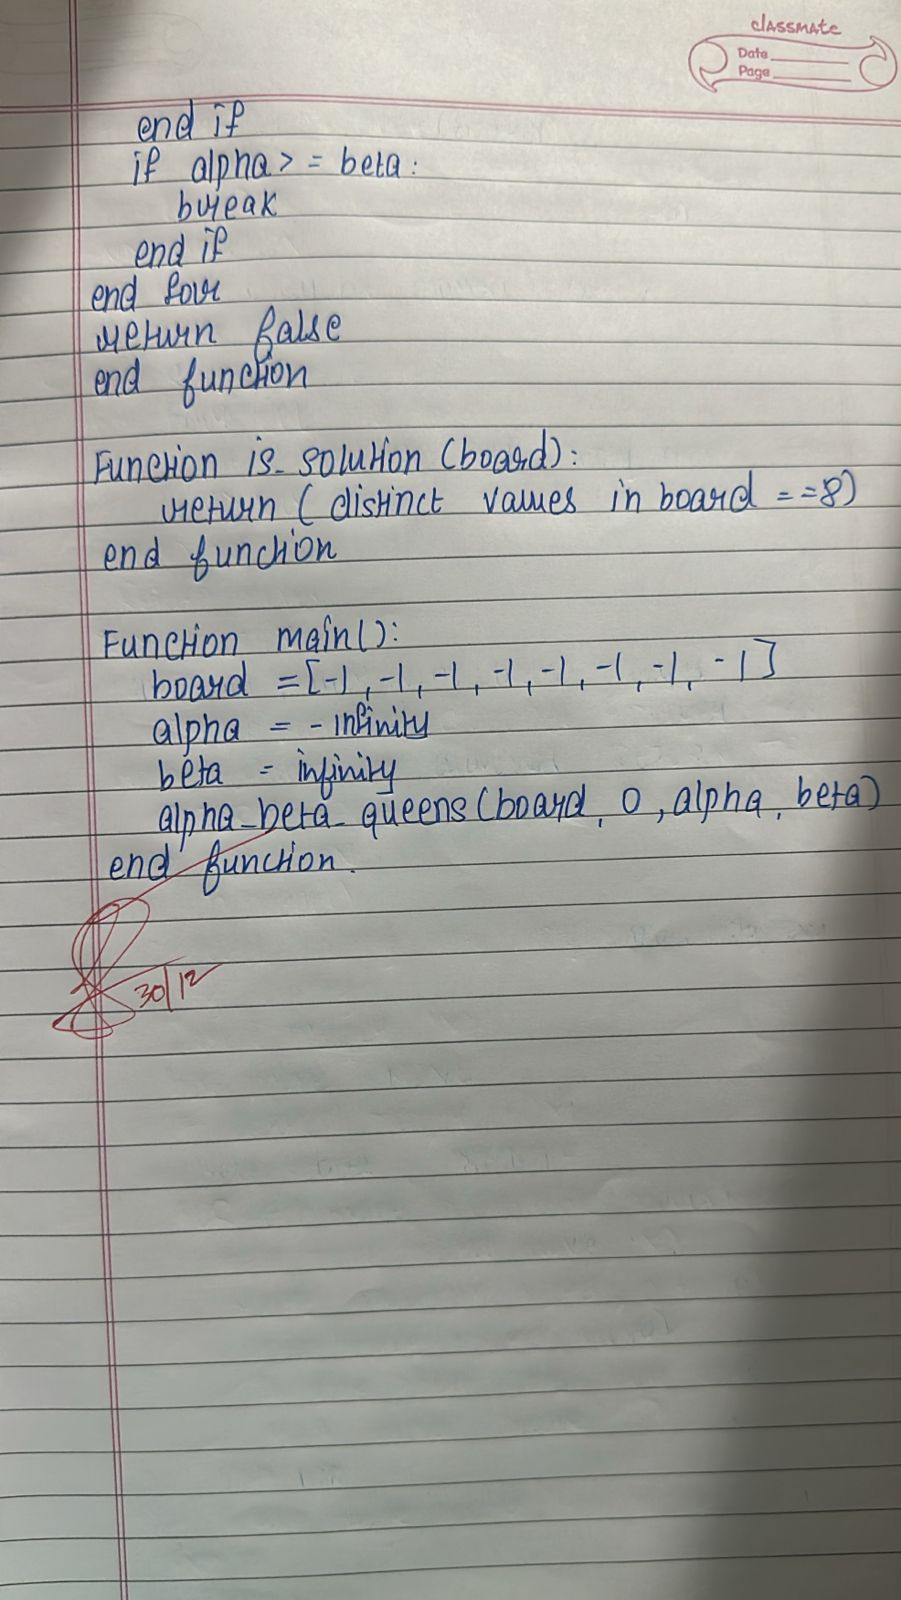 classmate
Date
Page
end if
if alpha > = beta:
break
end if
end for
return false
end function
Function is_solution (board):
return ( distinct values in board = = 8)
end function
Function main():
board = [-1, -1, -1, -1, -1, -1, -1, -1]
alpha = - infinity
beta = infinity
alpha_beta_queens (board, 0, alpha, beta)
end function.
30/12